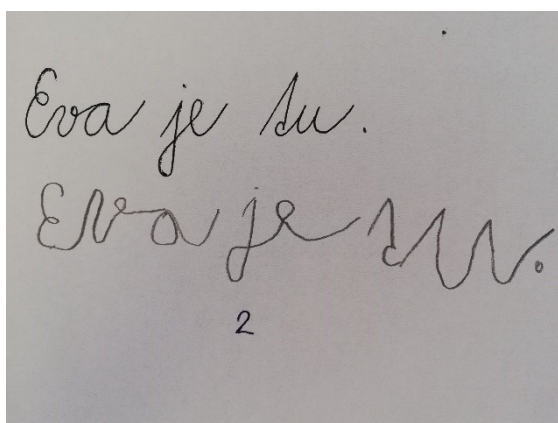 Eva je tu.
Eva je tu.
2